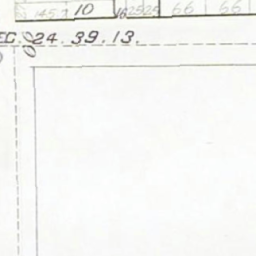 145.7 10 16 25 25 66 66
EC. 24. 39. 13.